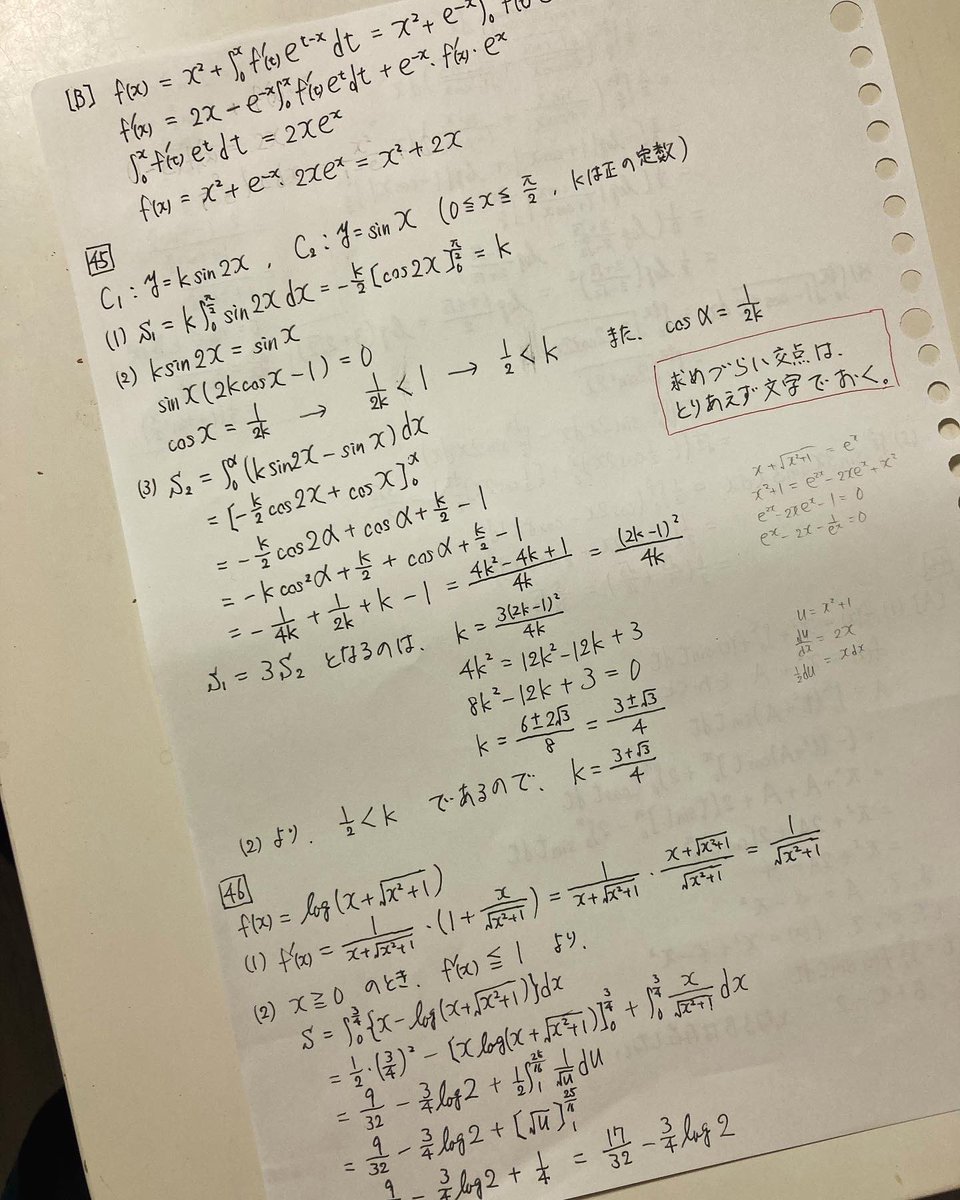 [B] f(x) = x² + ∫₀ˣ f'(t) e^{t-x} dt = x² + e^{-x} ∫₀
f'(x) = 2x - e^{-x} ∫₀ˣ f'(t) e^t dt + e^{-x}・f'(x)・e^x
∫₀ˣ f'(t) e^t dt = 2xe^x
f(x) = x² + e^{-x}・2xe^x = x² + 2x
45
C₁ : y = k sin2x , C₂ : y = sinx (0 ≦ x ≦ π/2 , kは正の定数)
(1) S₁ = k∫₀^{π/2} sin2x dx = -k/2 [cos2x]₀^{π/2} = k
(2) k sin2x = sinx
sinx(2kcosx - 1) = 0
cosx = 1/2k → 1/2k < 1 → 1/2 < k また、 cosα = 1/2k
求めづらい交点は、
とりあえず文字でおく。
(3) S₂ = ∫₀^α (k sin2x - sinx) dx
= [-k/2 cos2x + cosx]₀^α
= -k/2 cos2α + cosα + k/2 - 1
= -k cos²α + k/2 + cosα + k/2 - 1
= -1/4k + 1/2k + k - 1 = (4k² - 4k + 1)/4k = (2k-1)²/4k
S₁ = 3S₂ となるのは、 k = 3(2k-1)²/4k
4k² = 12k² - 12k + 3
8k² - 12k + 3 = 0
k = (6±2√3)/8 = (3±√3)/4
(2) より、 1/2 < k であるので、 k = (3+√3)/4
x + √(x²+1) = e^x
x²+1 = e^{2x} - 2xe^x + x²
e^{2x} - 2xe^x - 1 = 0
e^x - 2x - 1/e^x = 0
u = x²+1
du/dx = 2x
½du = xdx
46
f(x) = log(x + √(x²+1))
(1) f'(x) = 1/(x+√(x²+1))・(1 + x/√(x²+1)) = 1/(x+√(x²+1))・(x+√(x²+1))/√(x²+1) = 1/√(x²+1)
(2) x ≧ 0 のとき、 f'(x) ≦ 1 より、
S = ∫₀^{3/4} {x - log(x+√(x²+1))} dx
= 1/2・(3/4)² - [x log(x+√(x²+1))]₀^{3/4} + ∫₀^{3/4} x/√(x²+1) dx
= 9/32 - 3/4 log2 + 1/2 ∫₁^{25/16} 1/√u du
= 9/32 - 3/4 log2 + [√u]₁^{25/16}
9/ - 3/4 log2 + 1/4 = 17/32 - 3/4 log2